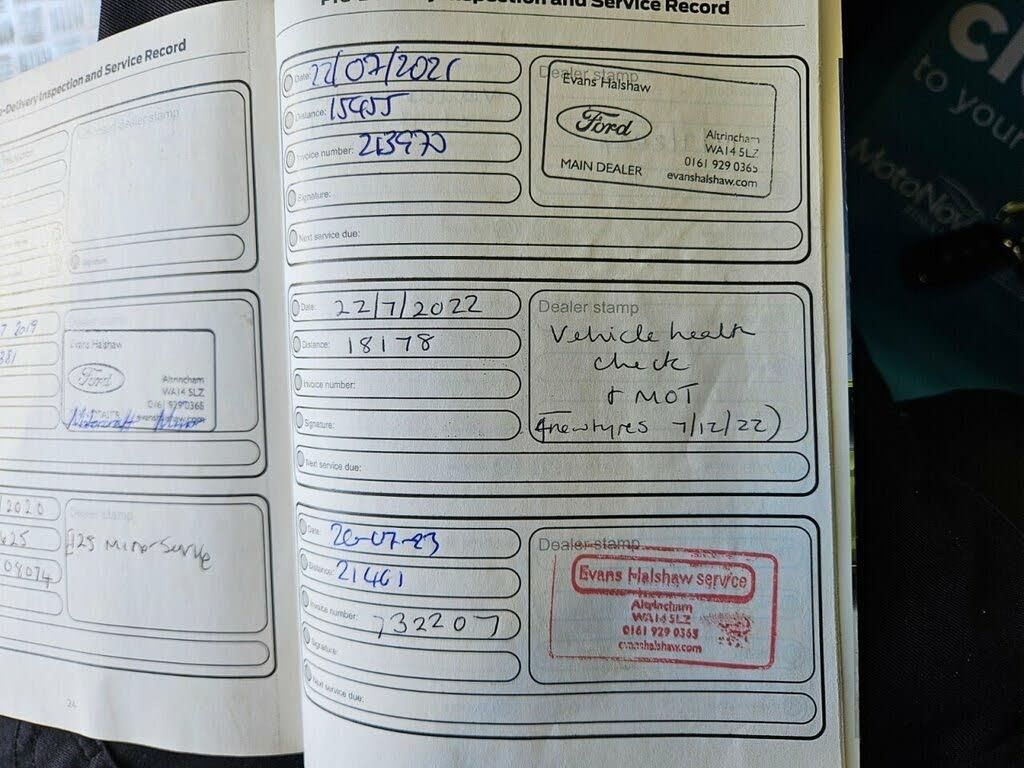 e-Delivery Inspection and Service Record
Authorised dealer stamp
Signature:
7 2019
381
Evans Halshaw
Ford
Altrincham
WA14 5LZ
0161 929 0365
evanshalshaw.com
Motorcraft Minor
2020
625
08074
Dealer stamp
£125 Minor Service
24
Pre-Delivery Inspection and Service Record
Date: 22/07/2021
Distance: 15455
Invoice number: 213970
Signature:
Next service due:
Dealer stamp
Evans Halshaw
Ford
MAIN DEALER
Altrincham
WA14 5LZ
0161 929 0365
evanshalshaw.com
Date: 22/7/2022
Distance: 18178
Invoice number:
Signature:
Next service due:
Dealer stamp
Vehicle health
check
& MOT
(4 new tyres 7/12/22)
Date: 20-07-23
Distance: 21461
Invoice number: 732207
Signature:
Next service due:
Dealer stamp
Evans Halshaw service
Altrincham
WA14 5LZ
0161 929 0365
evanshalshaw.com
to your
MotoNov